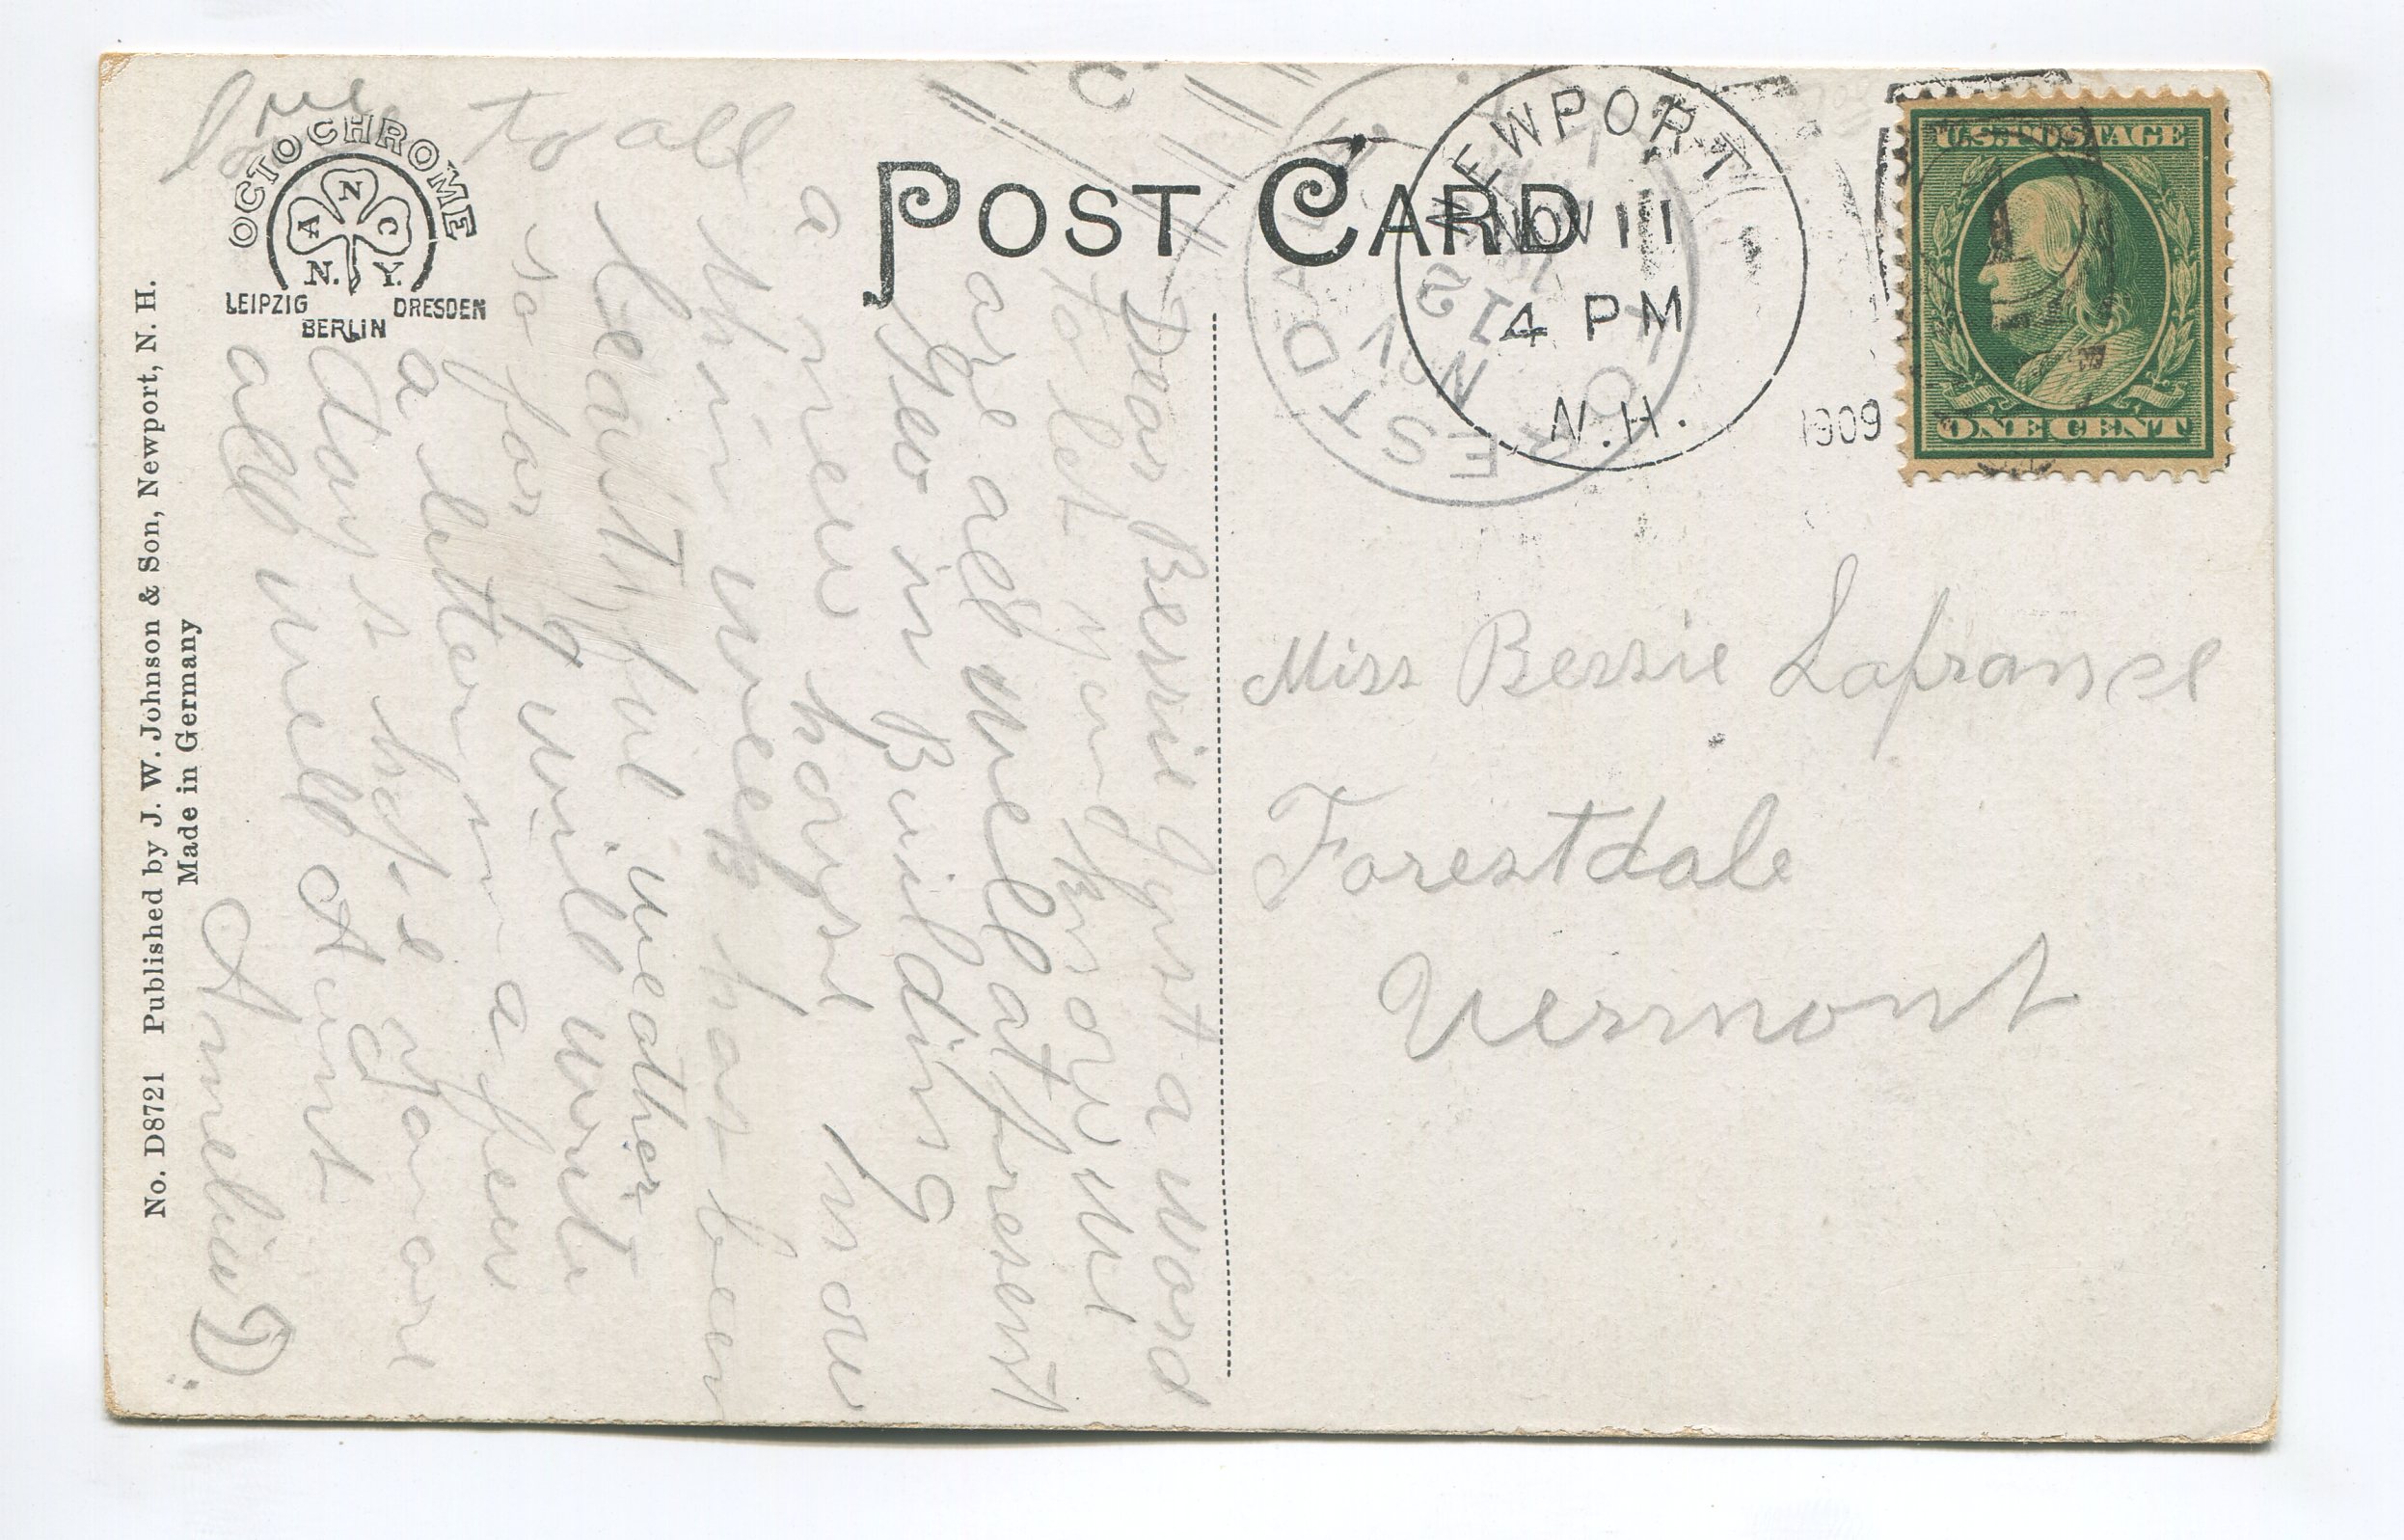 POST CARD
OCTOCHROME
A N C
N. Y.
LEIPZIG DRESDEN
BERLIN
No. D8721 Published by J. W. Johnson & Son, Newport, N. H.
Made in Germany
NEWPORT
NOV 11
4 PM
N.H.
1909
FORESTDALE
NOV
12
U.S. POSTAGE
ONE CENT
Miss Bessie Lafrance
Forestdale
Vermont
Dear Bessie Gust a word
to let you know we
are all well at present
Geo is Building
a new house now
this week has been
beautyful weather
so far I will write
a letter in a few
days hope you are
all well Aunt
Amelia D
love to all